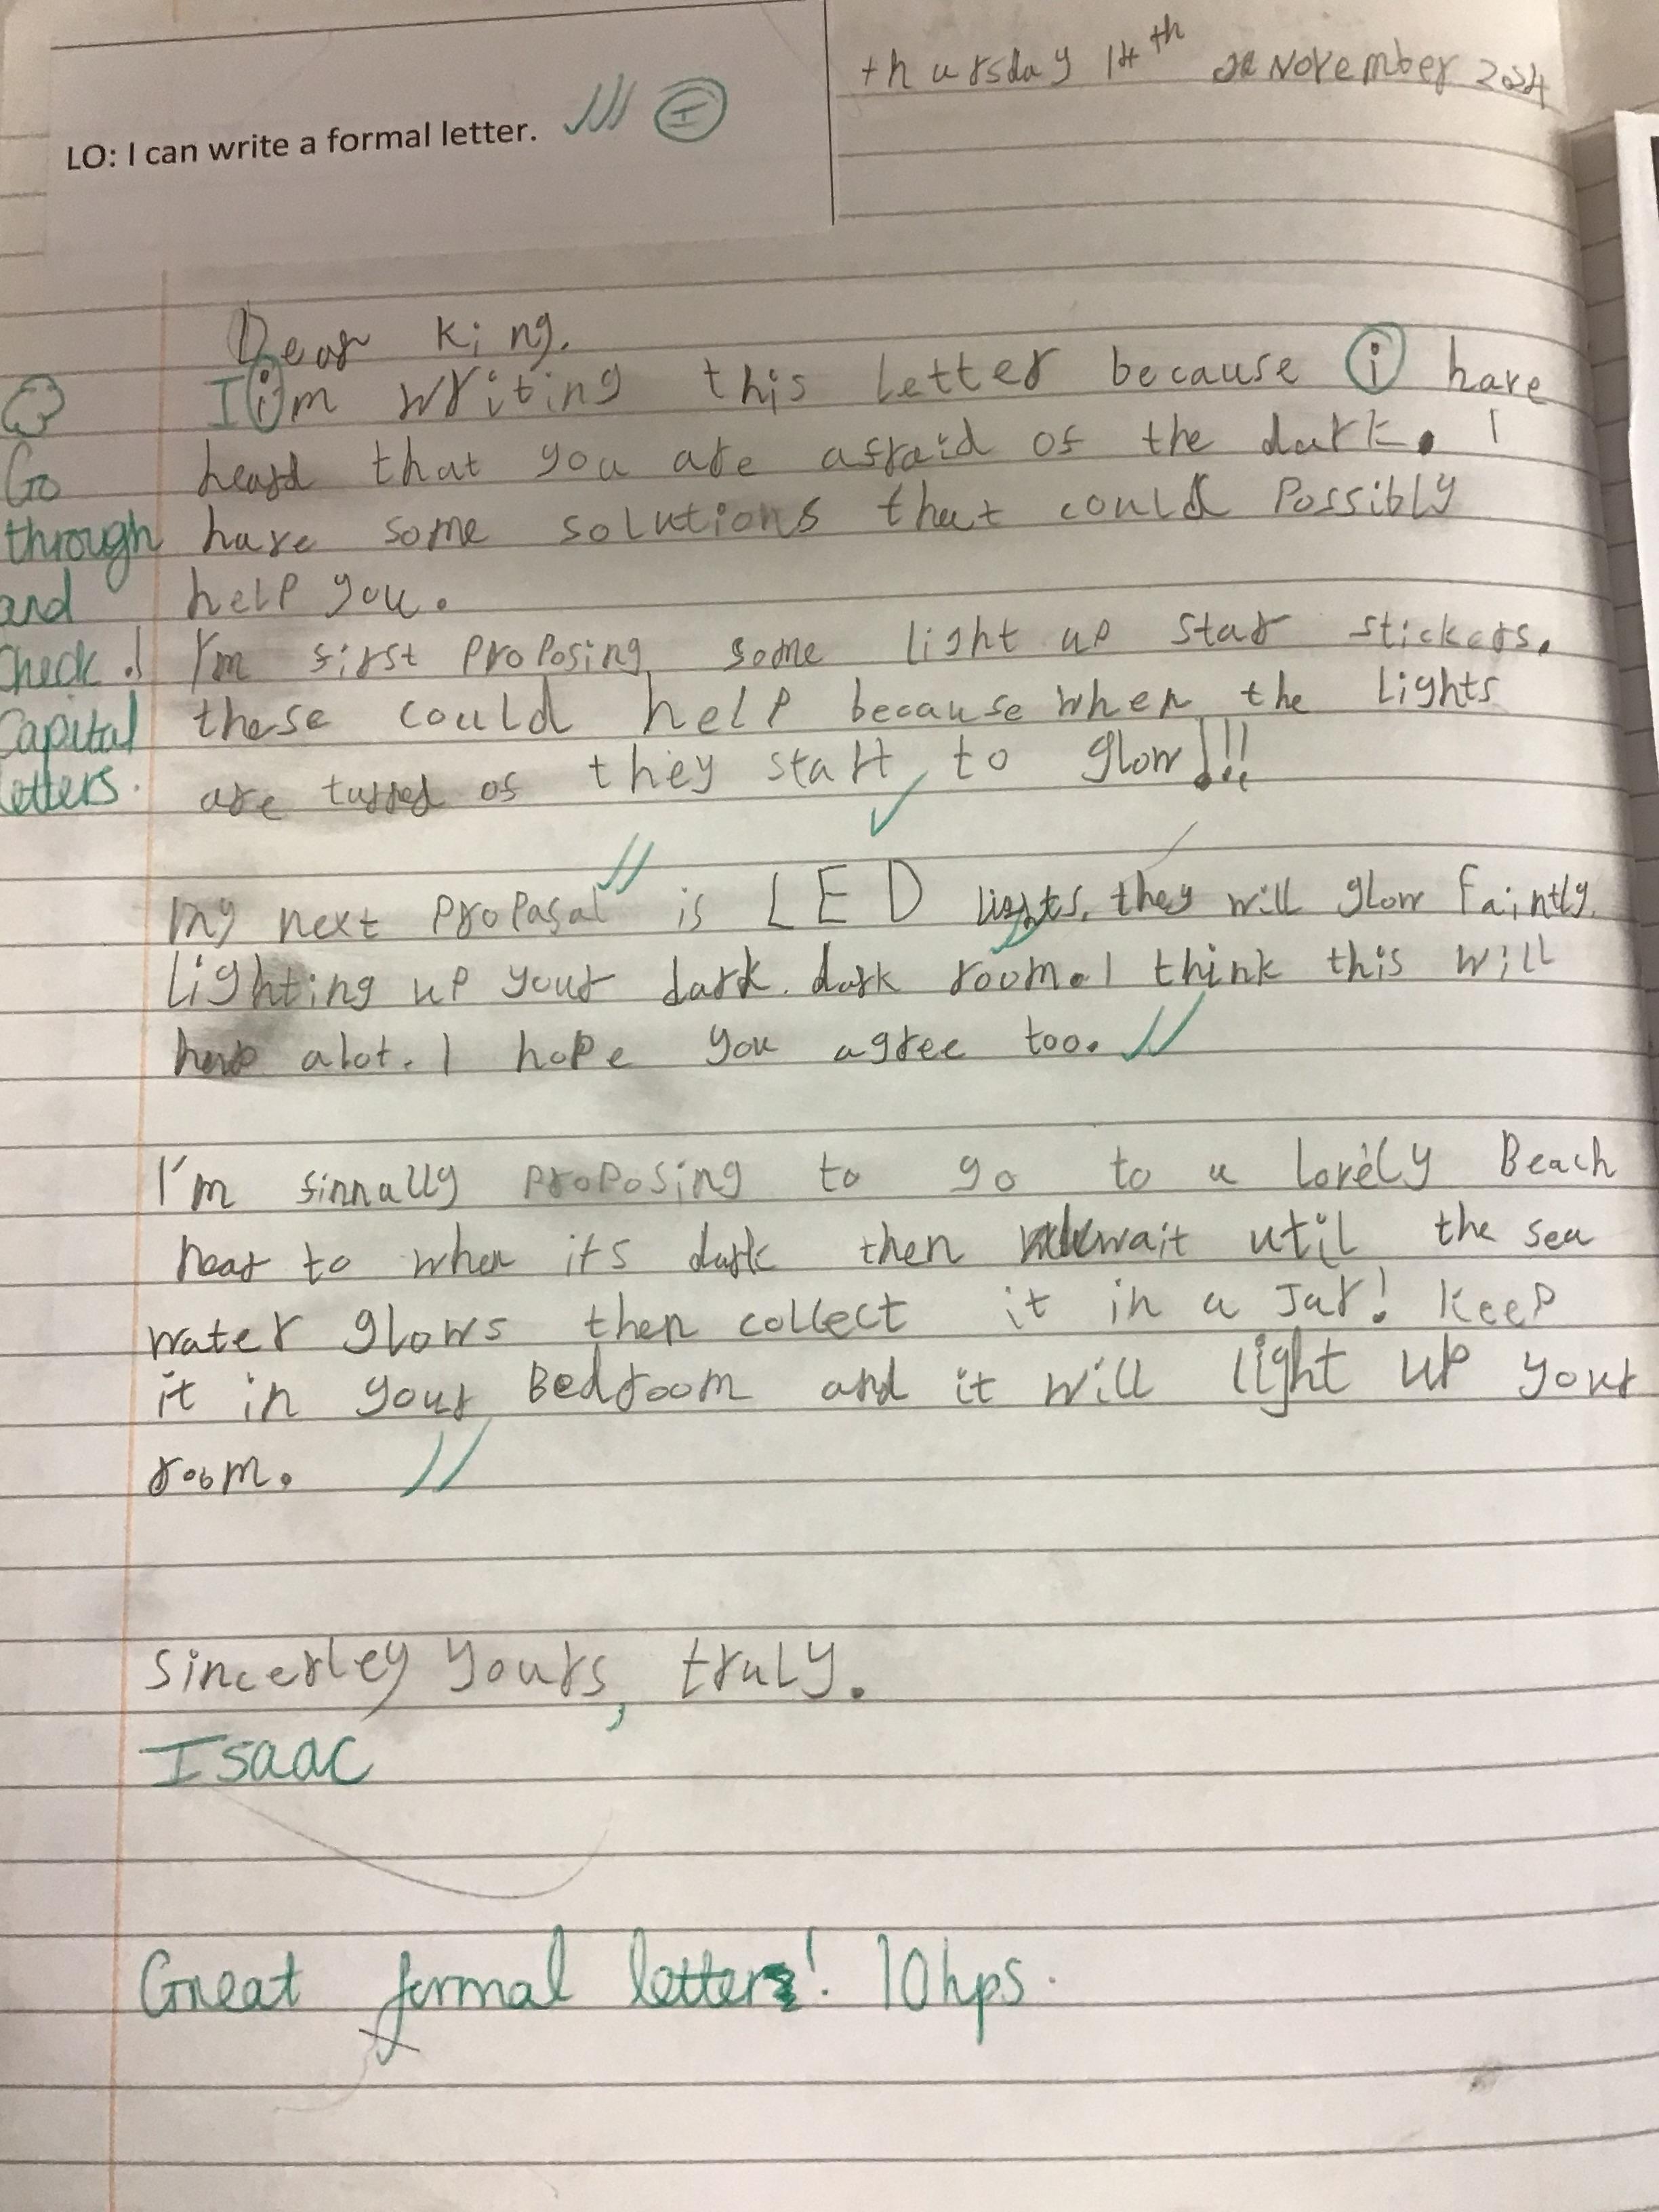 thursday 14th November 2024
LO: I can write a formal letter. I
Dear King.
I im writing this letter because i have
heard that you are afraid of the dark. I
have some solutions that could Possibly
help you.
I'm first proposing some light up star stickers.
these could help because when the lights
are turned of they start to glow!!!
Go
through
and
check!
Capital
letters.
my next propasal is LED lights. they will glow faintly.
Lighting up your dark. dark room. I think this will
help alot. I hope you agree too.
I'm finnally proposing to go to a lovely Beach
near to when its dark then wait util the sea
water glows then collect it in a Jar! Keep
it in your Bedroom and it will light up your
room.
sincerley yours, truly.
Isaac
Great formal letter! 10hps.